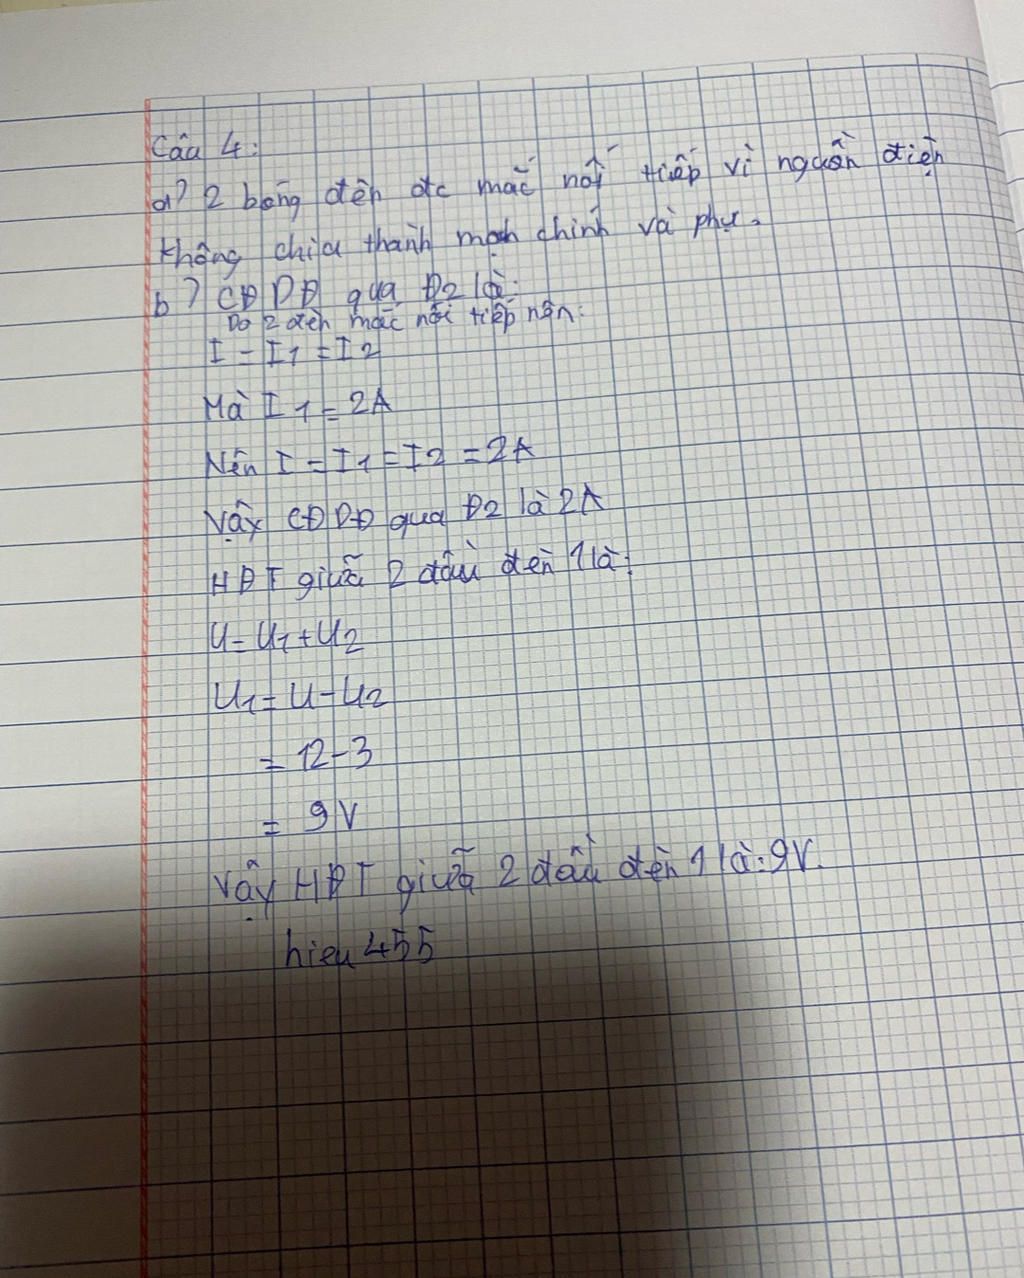 Câu 4:
a) 2 bóng đèn đc mắc nối tiếp vì nguồn điện
không chia thành mạch chính và phụ.
b) CĐDĐ qua Đ2 là:
Do 2 đèn mắc nối tiếp nên:
I = I1 = I2
Mà I1 = 2A
Nên I = I1 = I2 = 2A
Vậy CĐDĐ qua Đ2 là 2A
HĐT giữa 2 đầu đèn 1 là:
U = U1 + U2
U1 = U - U2
= 12 - 3
= 9V
Vậy HĐT giữa 2 đầu đèn 1 là: 9V.
hieu455